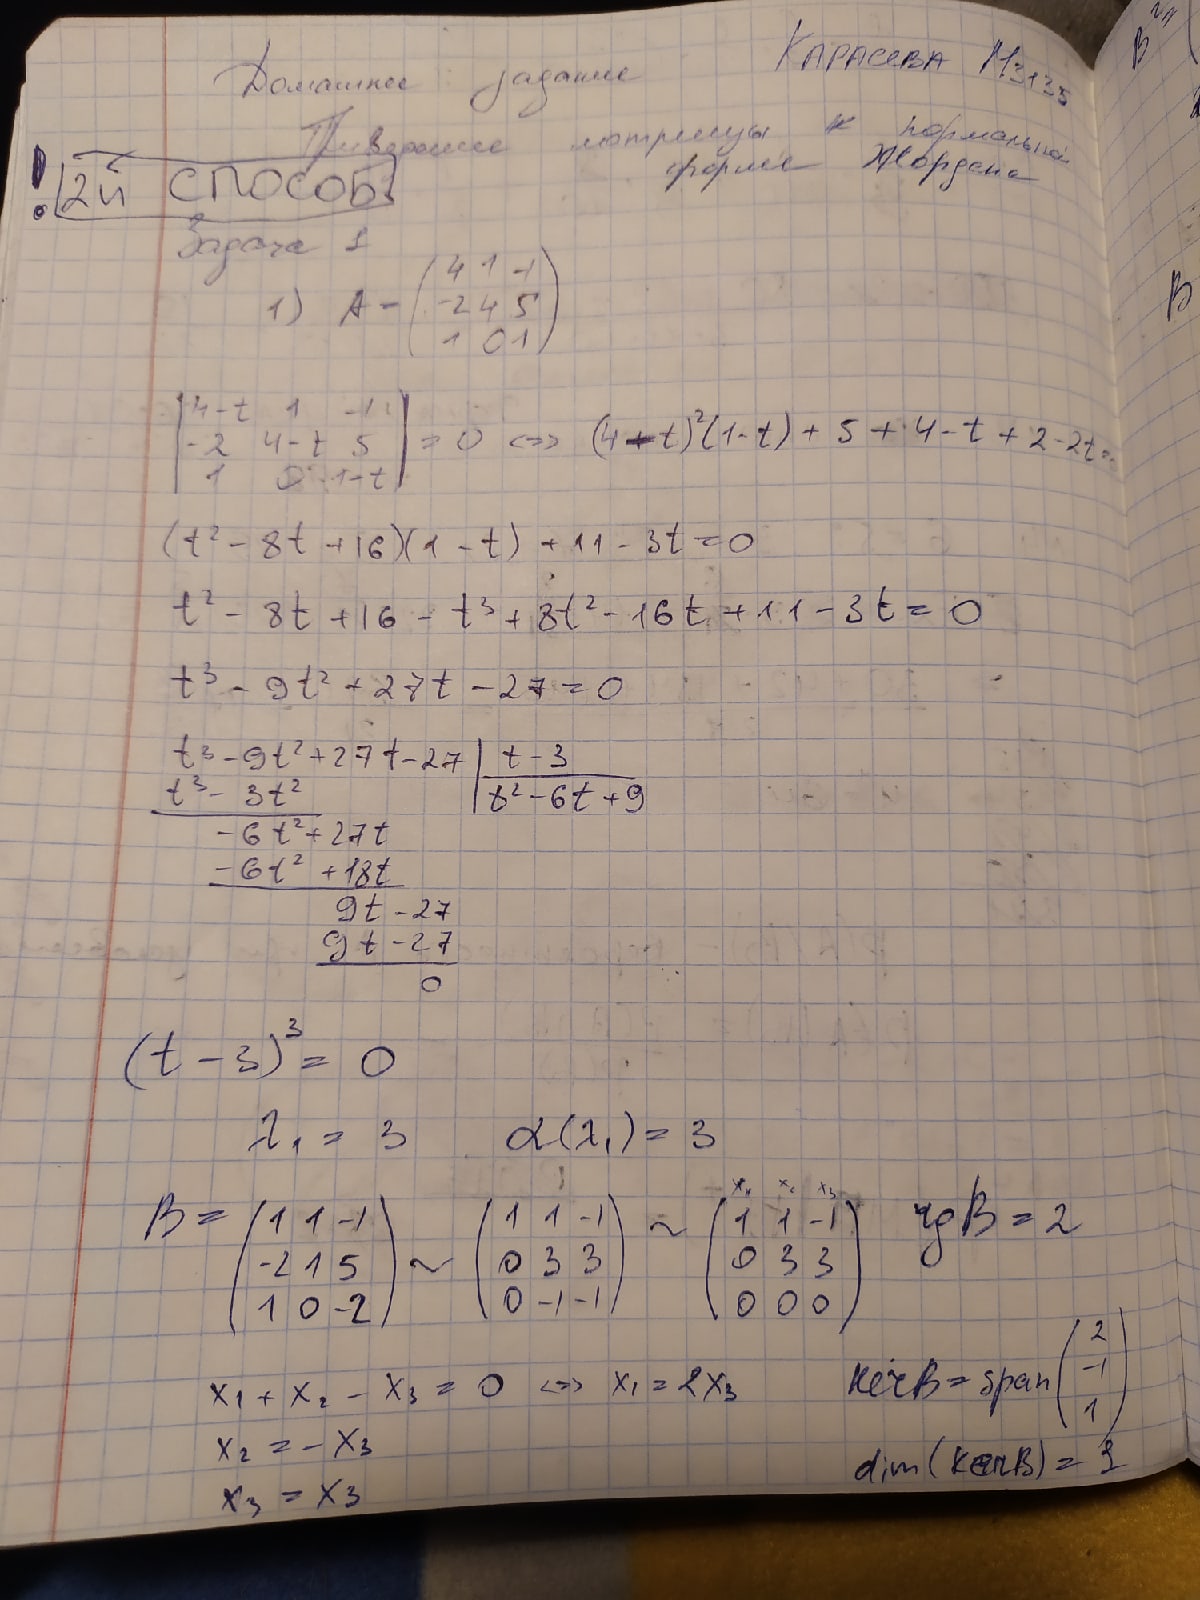 Домашнее задание
КАРАСЕВА М3135
Приведение матрицы к нормальной форме Жордана
! 2й СПОСОБ
Задача 1
1) A = (4 1 -1
-2 4 5
1 0 1)
|4-t 1 -1|
|-2 4-t 5| = 0 <=> (4-t)²(1-t) + 5 + 4-t + 2-2t=
|1 0 1-t|
(t² - 8t + 16)(1 - t) + 11 - 3t = 0
t² - 8t + 16 - t³ + 8t² - 16t + 11 - 3t = 0
t³ - 9t² + 27t - 27 = 0
t³ - 9t² + 27t - 27 | t - 3
t³ - 3t² | t² - 6t + 9
-6t² + 27t
-6t² + 18t
9t - 27
9t - 27
0
(t - 3)³ = 0
λ₁ = 3 α(λ₁) = 3
x₁ x₂ x₃
B = (1 1 -1 ~ (1 1 -1 ~ (1 1 -1 rgB = 2
-2 1 5 0 3 3 0 3 3
1 0 -2) 0 -1 -1) 0 0 0)
x₁ + x₂ - x₃ = 0 <=> x₁ = 2x₃
x₂ = -x₃
x₃ = x₃
KerB = span(2
-1
1)
dim(KerB) = 1
B
B